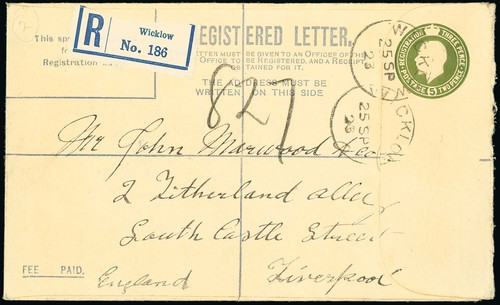 This sp
for
Registration
R
Wicklow
No. 186
REGISTERED LETTER.
LETTER MUST BE GIVEN TO AN OFFICER OF THE
OFFICE TO BE REGISTERED, AND A RECEIPT
OBTAINED FOR IT.
THE ADDRESS MUST BE
WRITTEN ON THIS SIDE
REGISTRATION THREE PENCE
POSTAGE TWO PENCE
5
WICKLOW
25 SP
23
25 SP
23
827
Mr John Marwood
2 Litherland alley
South Castle Street
Liverpool
England
FEE PAID.